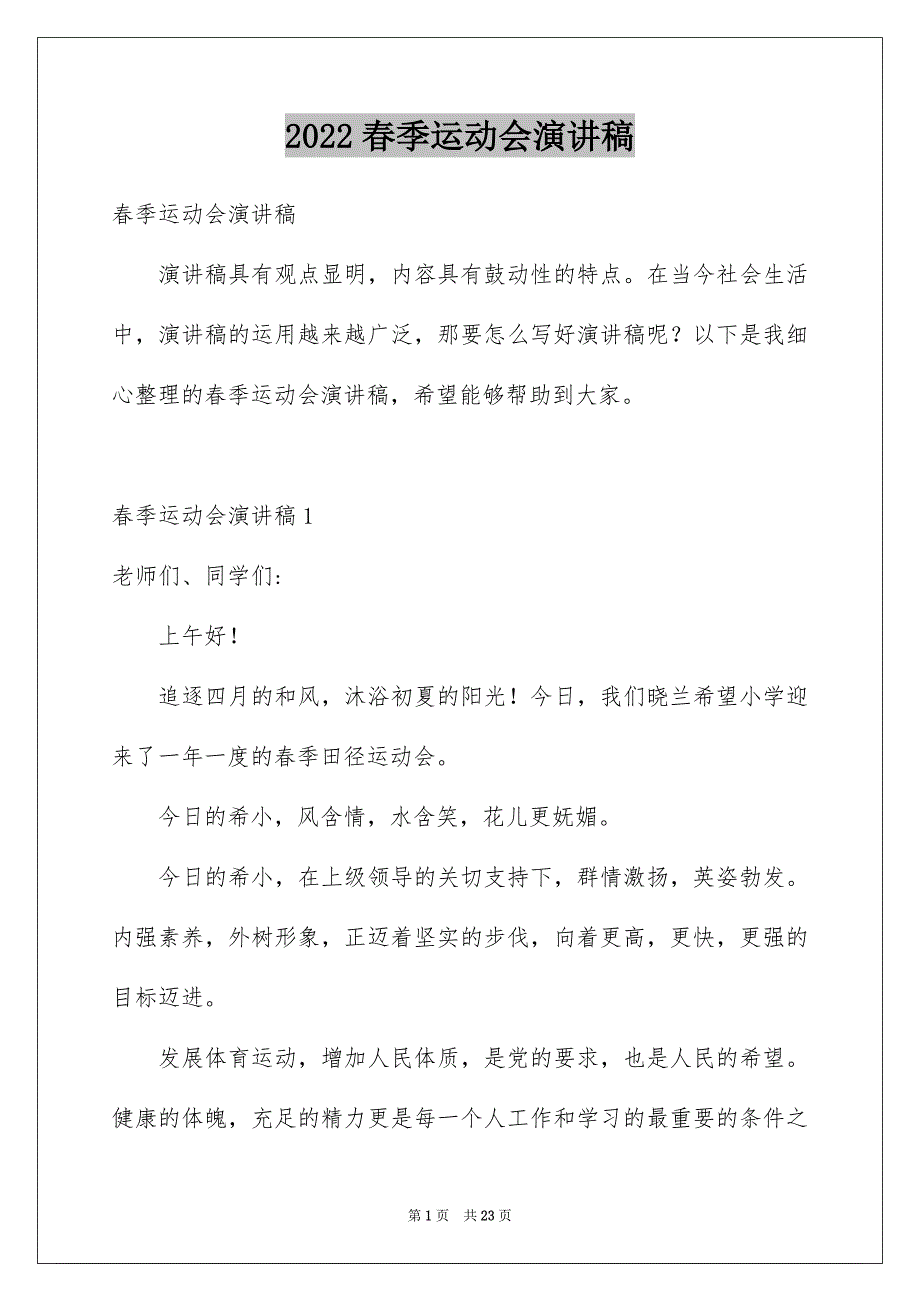 2022春季运动会演讲稿
春季运动会演讲稿
演讲稿具有观点显明，内容具有鼓动性的特点。在当今社会生活
中，演讲稿的运用越来越广泛，那要怎么写好演讲稿呢？以下是我细
心整理的春季运动会演讲稿，希望能够帮助到大家。
春季运动会演讲稿1
老师们、同学们:
上午好！
追逐四月的和风，沐浴初夏的阳光！今日，我们晓兰希望小学迎
来了一年一度的春季田径运动会。
今日的希小，风含情，水含笑，花儿更妩媚。
今日的希小，在上级领导的关切支持下，群情激扬，英姿勃发。
内强素养，外树形象，正迈着坚实的步伐，向着更高，更快，更强的
目标迈进。
发展体育运动，增加人民体质，是党的要求，也是人民的希望。
健康的体魄，充足的精力更是每一个人工作和学习的最重要的条件之
第1页 共23页